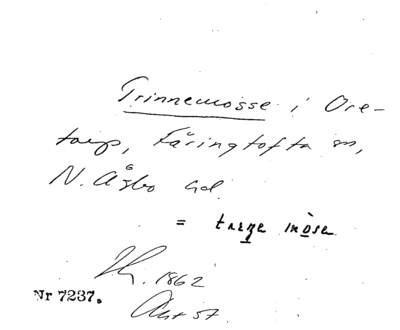 Trinnemosse i Ore-
tarp, Färingtofta sn,
N. Åsbo hd.
= targe mose
1862
Nr 7237.